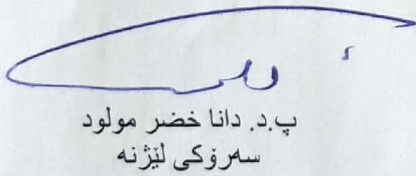 پ.د. دانا خضر مولود
سەرۆکی لێژنە